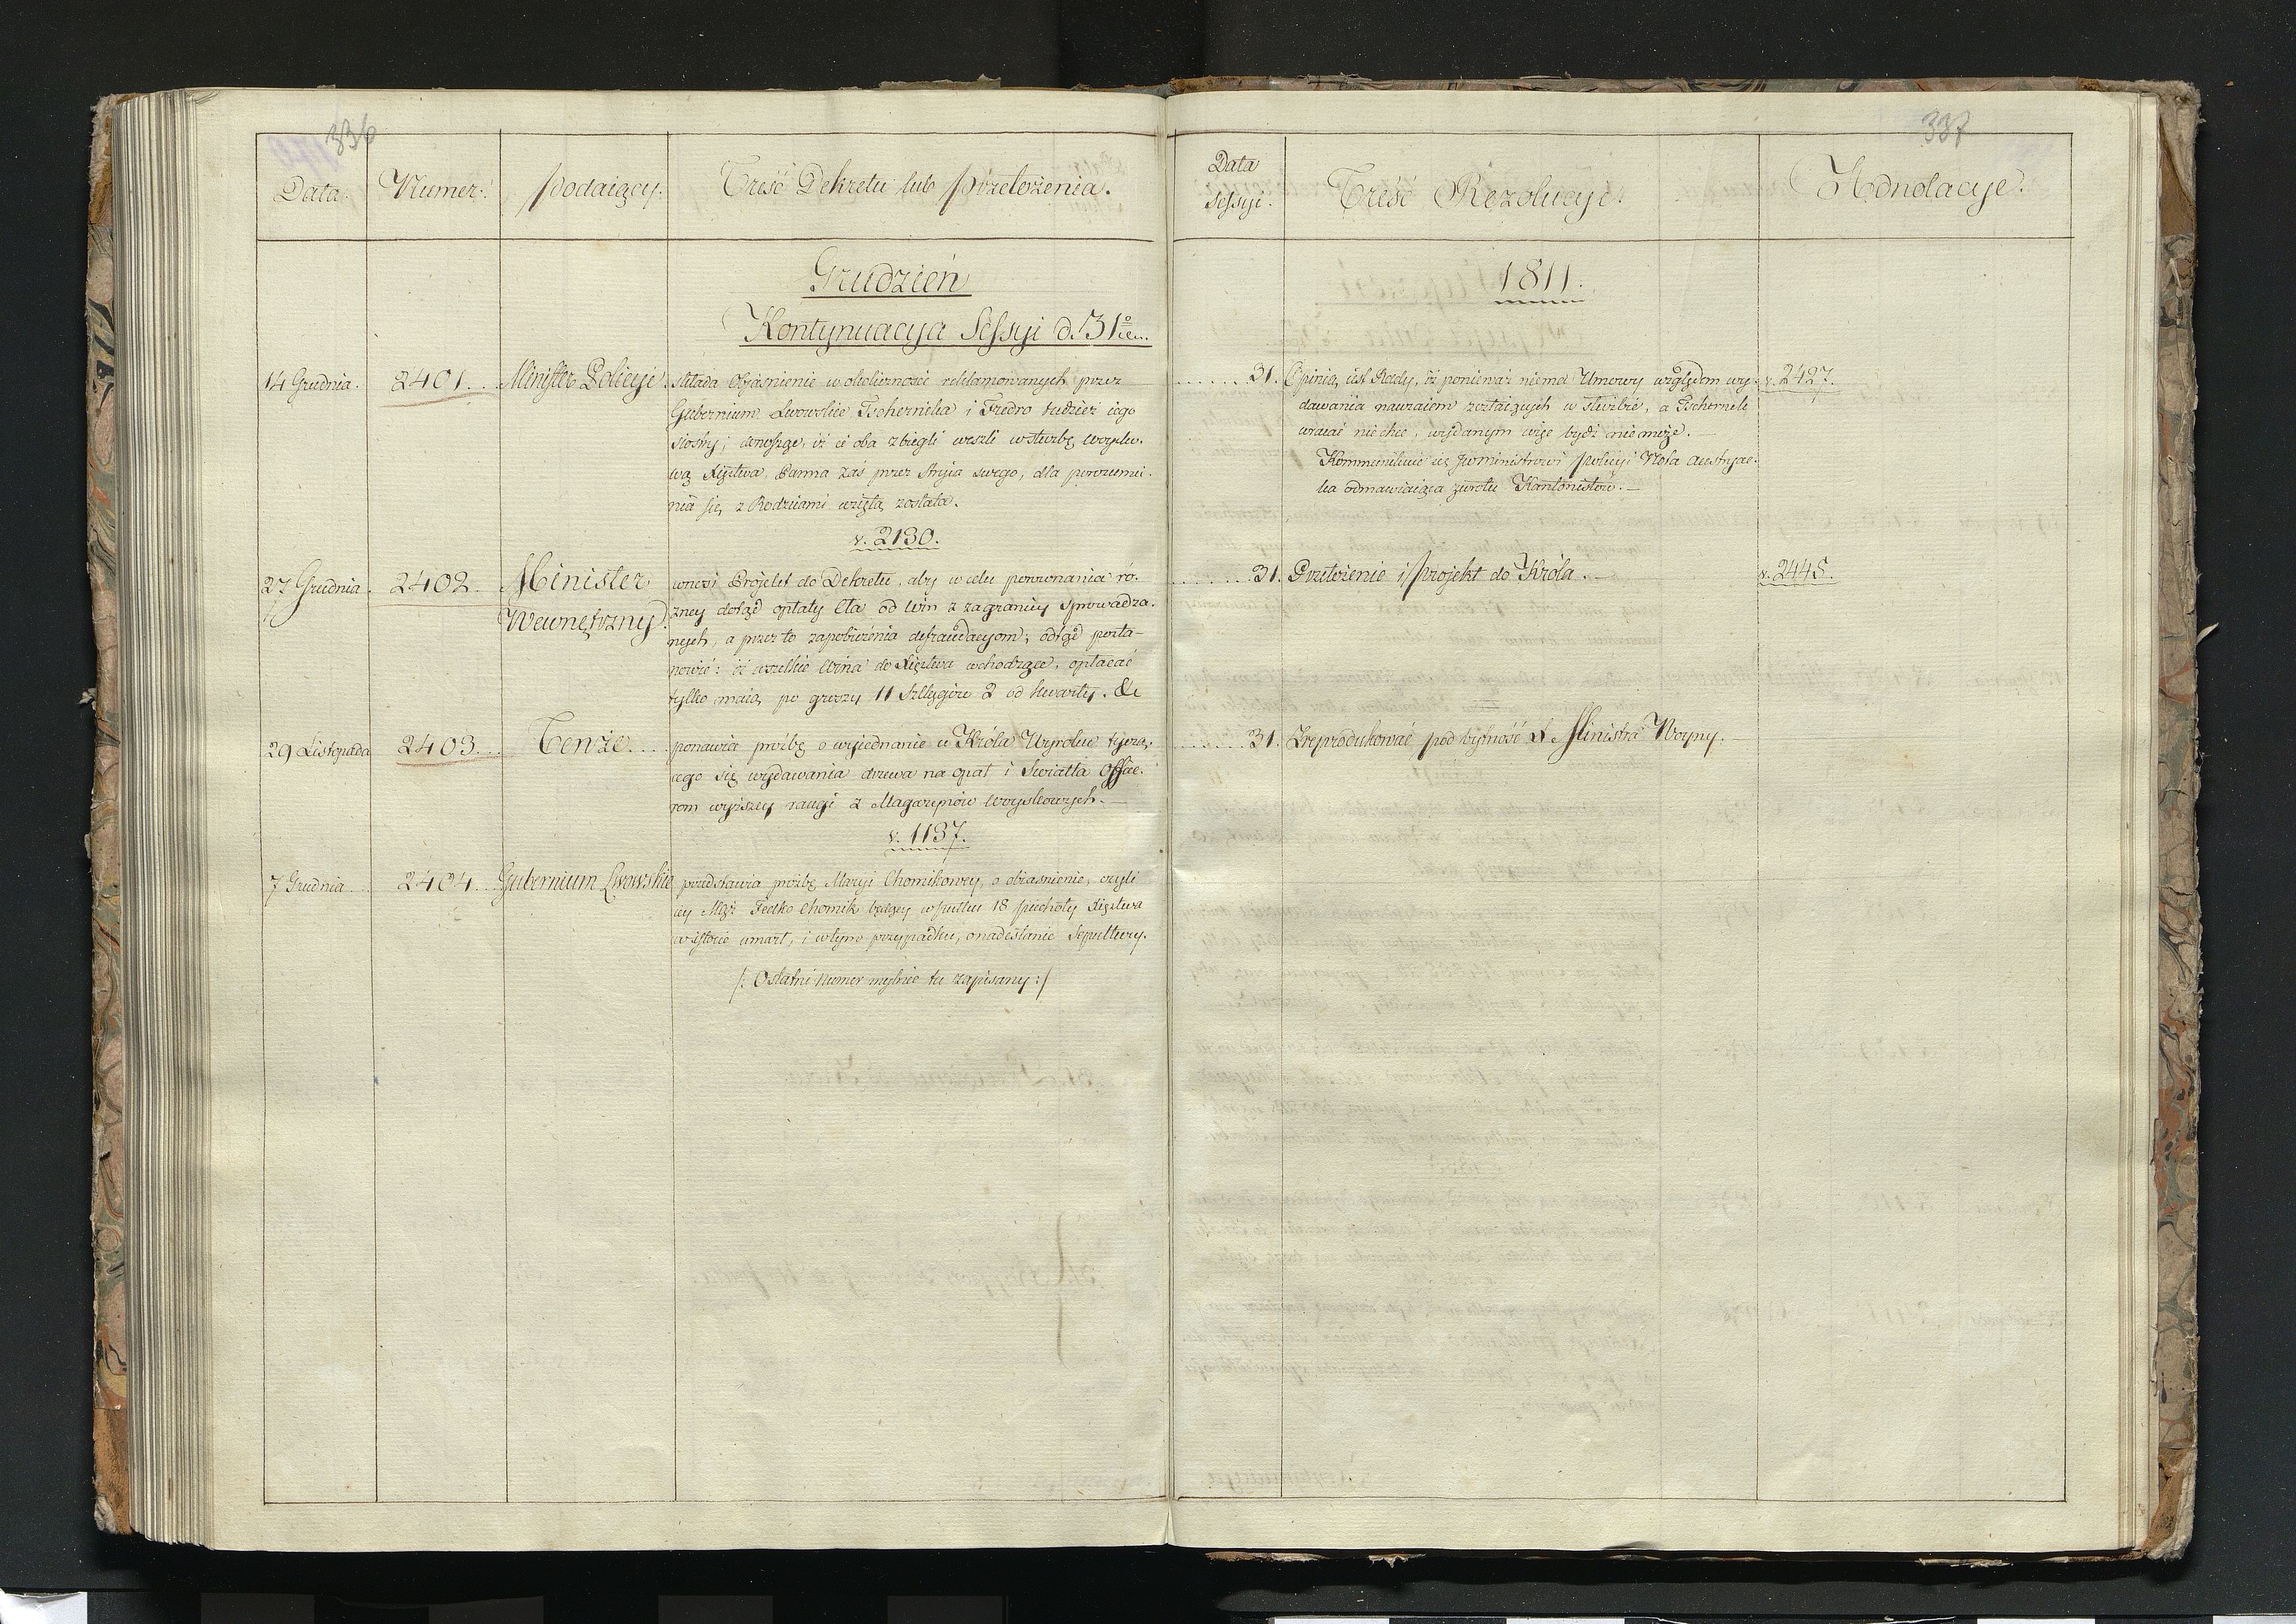 336
Data. Numer: Podaiący: Treść Dekretu lub Przełożenia.
Grudzień
Kontynuacya Sessyi d. 31º
14 Grudnia. 2401. Minister Policyi. składa objaśnienie w okoliczności reklamowanych przez
Gubernium Lwowskie Tschernika i Fredro tudzież iego
siostry; donosząc, iż ci oba zbiegli weszli w służbę woysko-
wą Xięstwa, Panna zaś przez Stryia swego, dla porozumi-
nia się z Rodzicami wziętą została.
v. 2130.
27 Grudnia. 2402. Minister
Wewnętrzny. wnosi Projekt do Dekretu, aby w celu porównania ró-
żney dotąd opłaty Cła od Win z zagranicy sprowadza-
nych, a przez to zapobieżenia defraudacyom; odtąd posta-
nowić: iż wszelkie Wina do Xięstwa wchodzące, opłacać
tylko maią po groszy 11 Szelągów 2 od kwarty. &c
29 Listopada 2403. Tenże ponawia prośbę o wyiednanie u Króla Wyroku tyczą-
cego się wydawania drzewa na opał i Swiatła Office-
rom wyższey rangi z Magazynów woyskowych. —
v. 1137.
7 Grudnia 2404. Gubernium Lwowskie przedstawia prośbę Maryi Chomikowey, o obiaśnienie, czyli
iey Mąż Fedko Chomik będący w pułku 18 piechoty Xięstwa
w istocie umarł, i w tym przypadku, o nadesłanie Sepultury.
/: Ostatni numer mylnie tu zapisany :/
337
Data
Sessyi. Treść Rezolucyi: Adnotacye.
1811.
31. Opinią iest Rady, iż ponieważ niema Umowy względem wy- v. 2427.
dawania nawzaiem zostaiących w służbie, a Tschernik
wracać nie chce, wydanym więc bydź nie może. —
Kommunikuie się Ministrowi Policyi Nota Austryac-
ka odmawiaiąca zwrotu Kantonistów. —
31. Przełożenie i Projekt do Króla. — v. 2445.
31. Zreprodukować pod bytność Ministra Woyny.